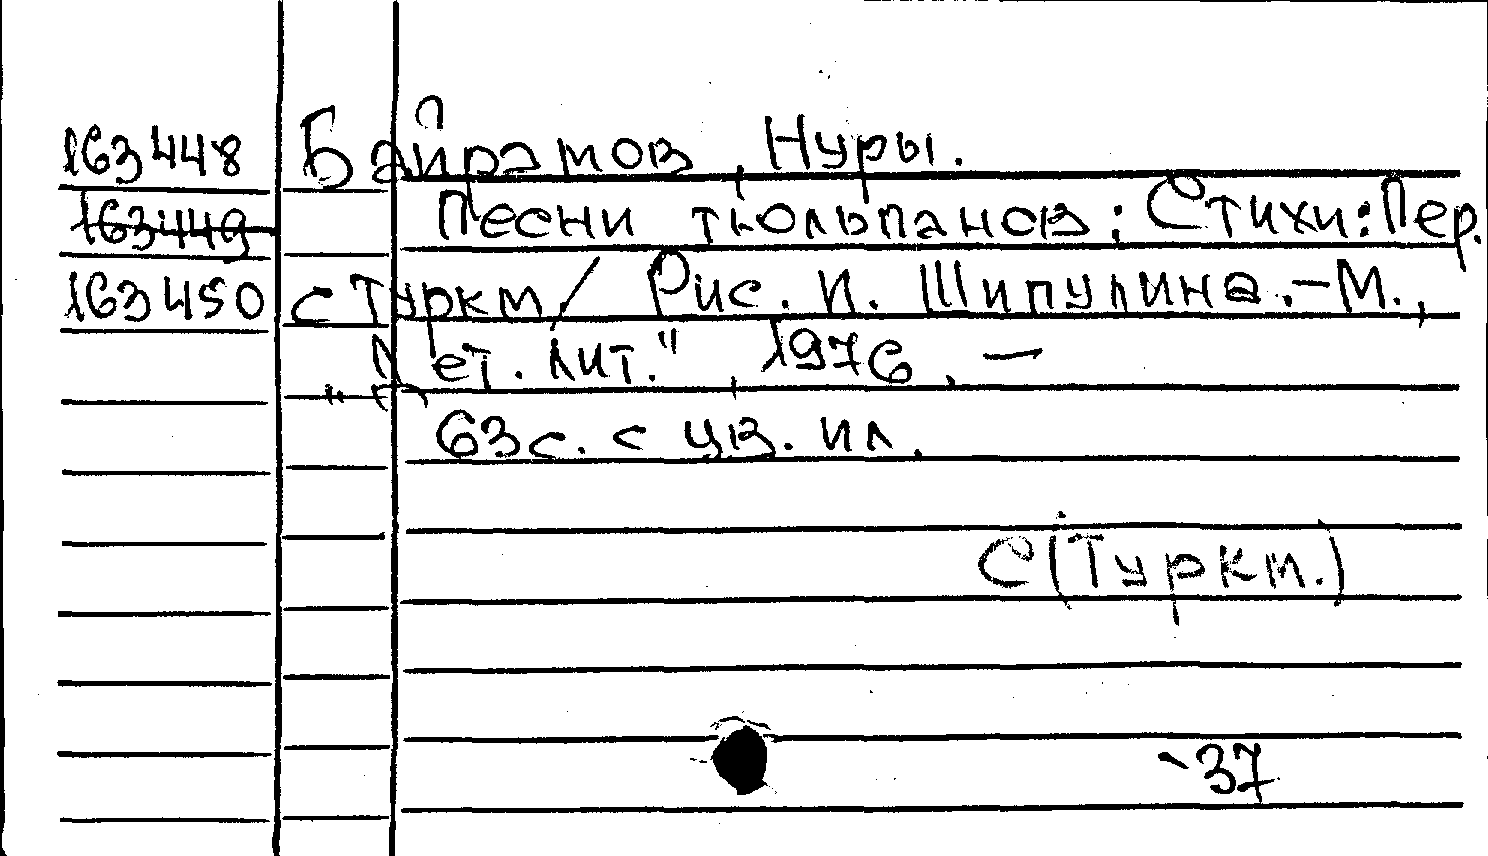 163448 Байрамов, Нуры.
163449 Песни тюльпанов: Стихи: Пер.
163450 с Туркм/ Рис. И. Шипулина.-М.,
"Дет. лит.", 1976, —
63с. с цв. ил.
С(Туркм.)
37